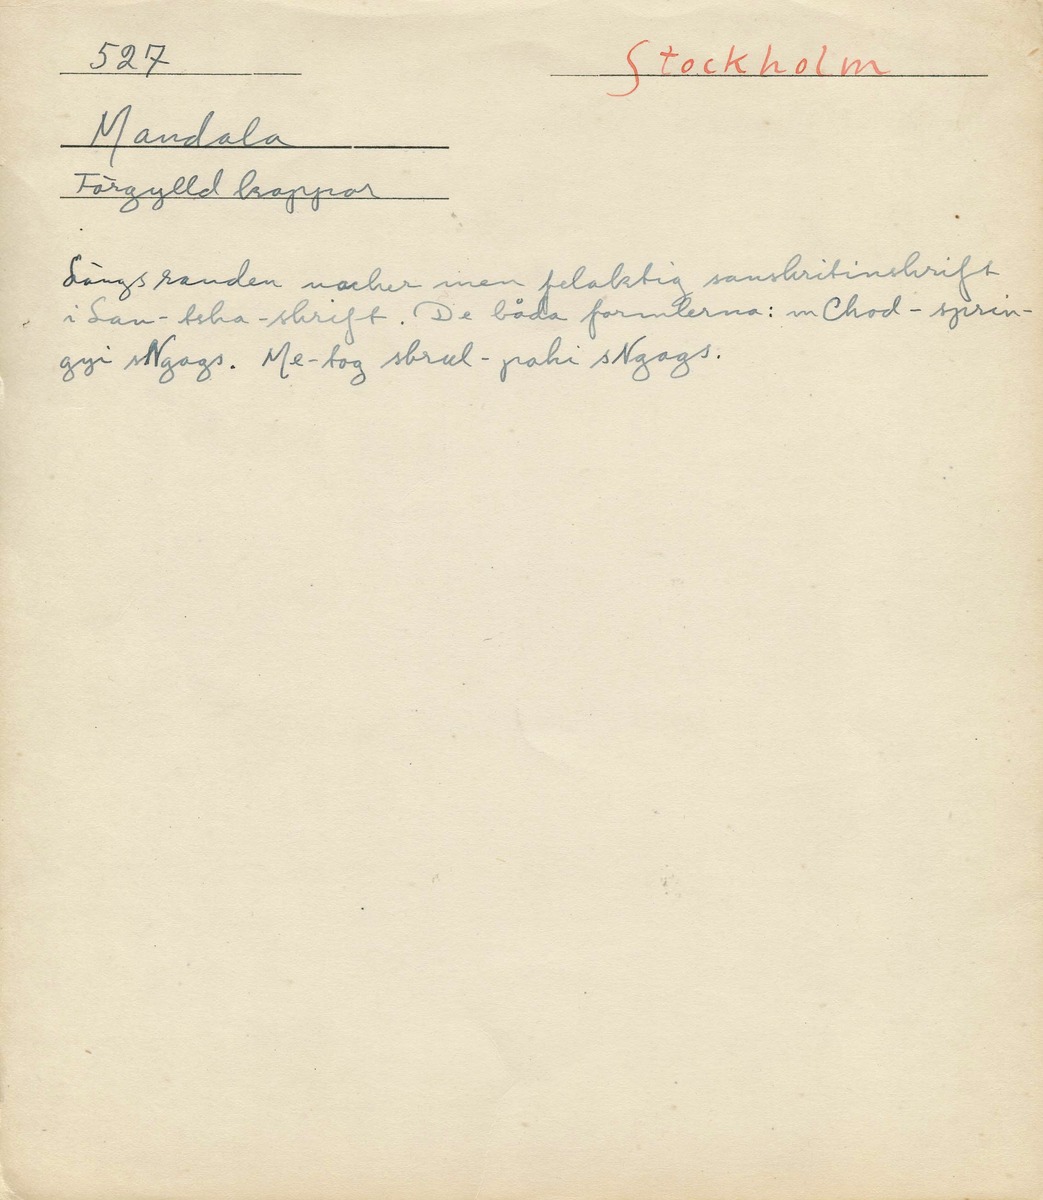 527
Stockholm
Mandala
Förgylld koppar
Längs randen vacker men felaktig sanskritinskrift
i Lan-tsha-skrift. De båda formlerna: mChod-sprin-
gyi sNgags. Me-tog sbrul-pahi sNgags.